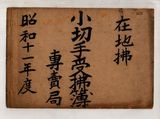 在地拂
小切手受拂簿
專賣局
昭和十一年度